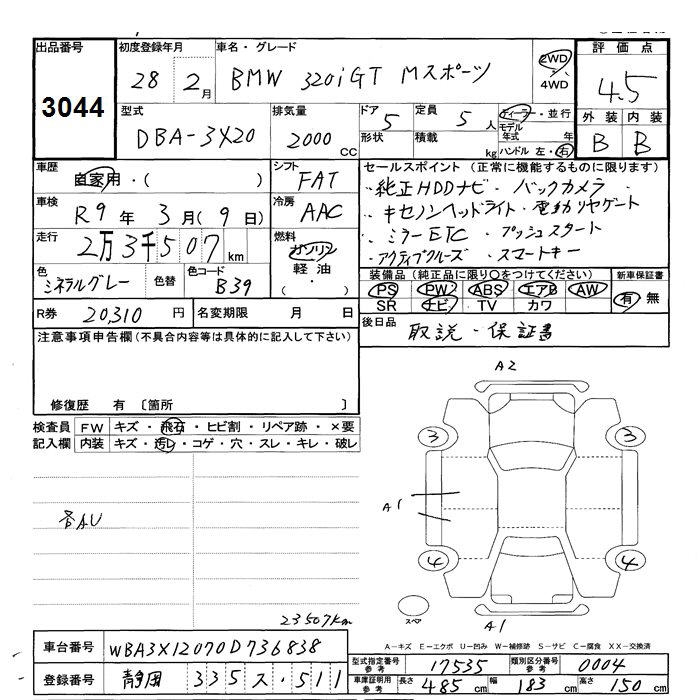 出品番号 初度登録年月 車名・グレード 評価点
3044 28 2月 BMW 320iGT Mスポーツ 2WD・4WD 4.5
型式 排気量 ドア 定員 ディーラー・並行 外装 内装
DBA-3X20 2000 CC 5 5人 モデル年式 年 B B
形状 積載 kg ハンドル 左・右
車歴 自家用・( ) シフト FAT セールスポイント (正常に機能するものに限ります)
車検 R9年 3月(9日) 冷房 AAC ・純正HDDナビ・バックカメラ
・キセノンヘッドライト・電動リヤゲート
走行 2万3千507km 燃料 ガソリン ・ミラーETC ・プッシュスタート
軽油 ・アクティブクルーズ・スマートキー
色 ミネラルグレー 色替 色コード B39 ( ・ )
装備品 (純正品に限り〇をつけてください) 新車保証書
PS PW ABS エアB AW 有・無
SR ナビ TV カワ
R券 20,310 円 名変期限 月 日
後日品 取説・保証書
注意事項申告欄(不具合内容等は具体的に記入して下さい)
修復歴 有 〔箇所 〕
検査員 FW キズ・飛石・ヒビ割・リペア跡・×要
記入欄 内装 キズ・汚レ・コゲ・穴・スレ・キレ・破レ
各AU
23507km
A2
3 3
A1
4 4
スペア
A1
A-キズ E-エクボ U-凹み W-補修跡 S-サビ C-腐食 XX-交換済
車台番号 WBA3X12070D736838
登録番号 静岡 335 ス・511
型式指定番号 参考 17535 類別区分番号 参考 0004
車庫証明用 参考 長さ 485 cm 幅 183 cm 高さ 150 cm